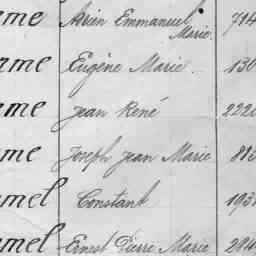 me Adrien Emmanuel 714
Marie
me Eugène Marie 130
me Jean René 222
me Joseph Jean Marie 813
mel Constant 193
mel Ernest Pierre Marie 294